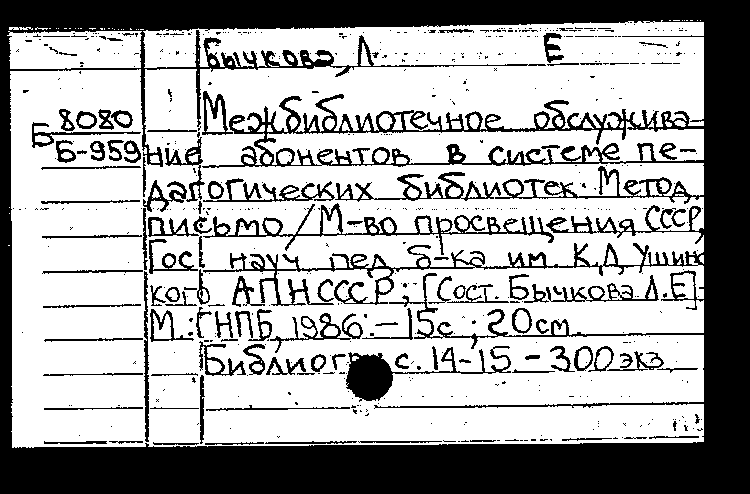 Бычкова, Л. Е
Б 8080 Межбиблиотечное обслужива-
Б-959 ние абонентов в системе пе-
дагогических библиотек. Метод.
письмо / М-во просвещения СССР,
Гос. науч. пед. б-ка им. К.Д. Ушинс
кого АПН СССР; [Сост. Бычкова Л.Е]-
М.: ГНПБ, 1986. - 15с ; 20см.
Библиогр. с. 14-15. - 300 экз